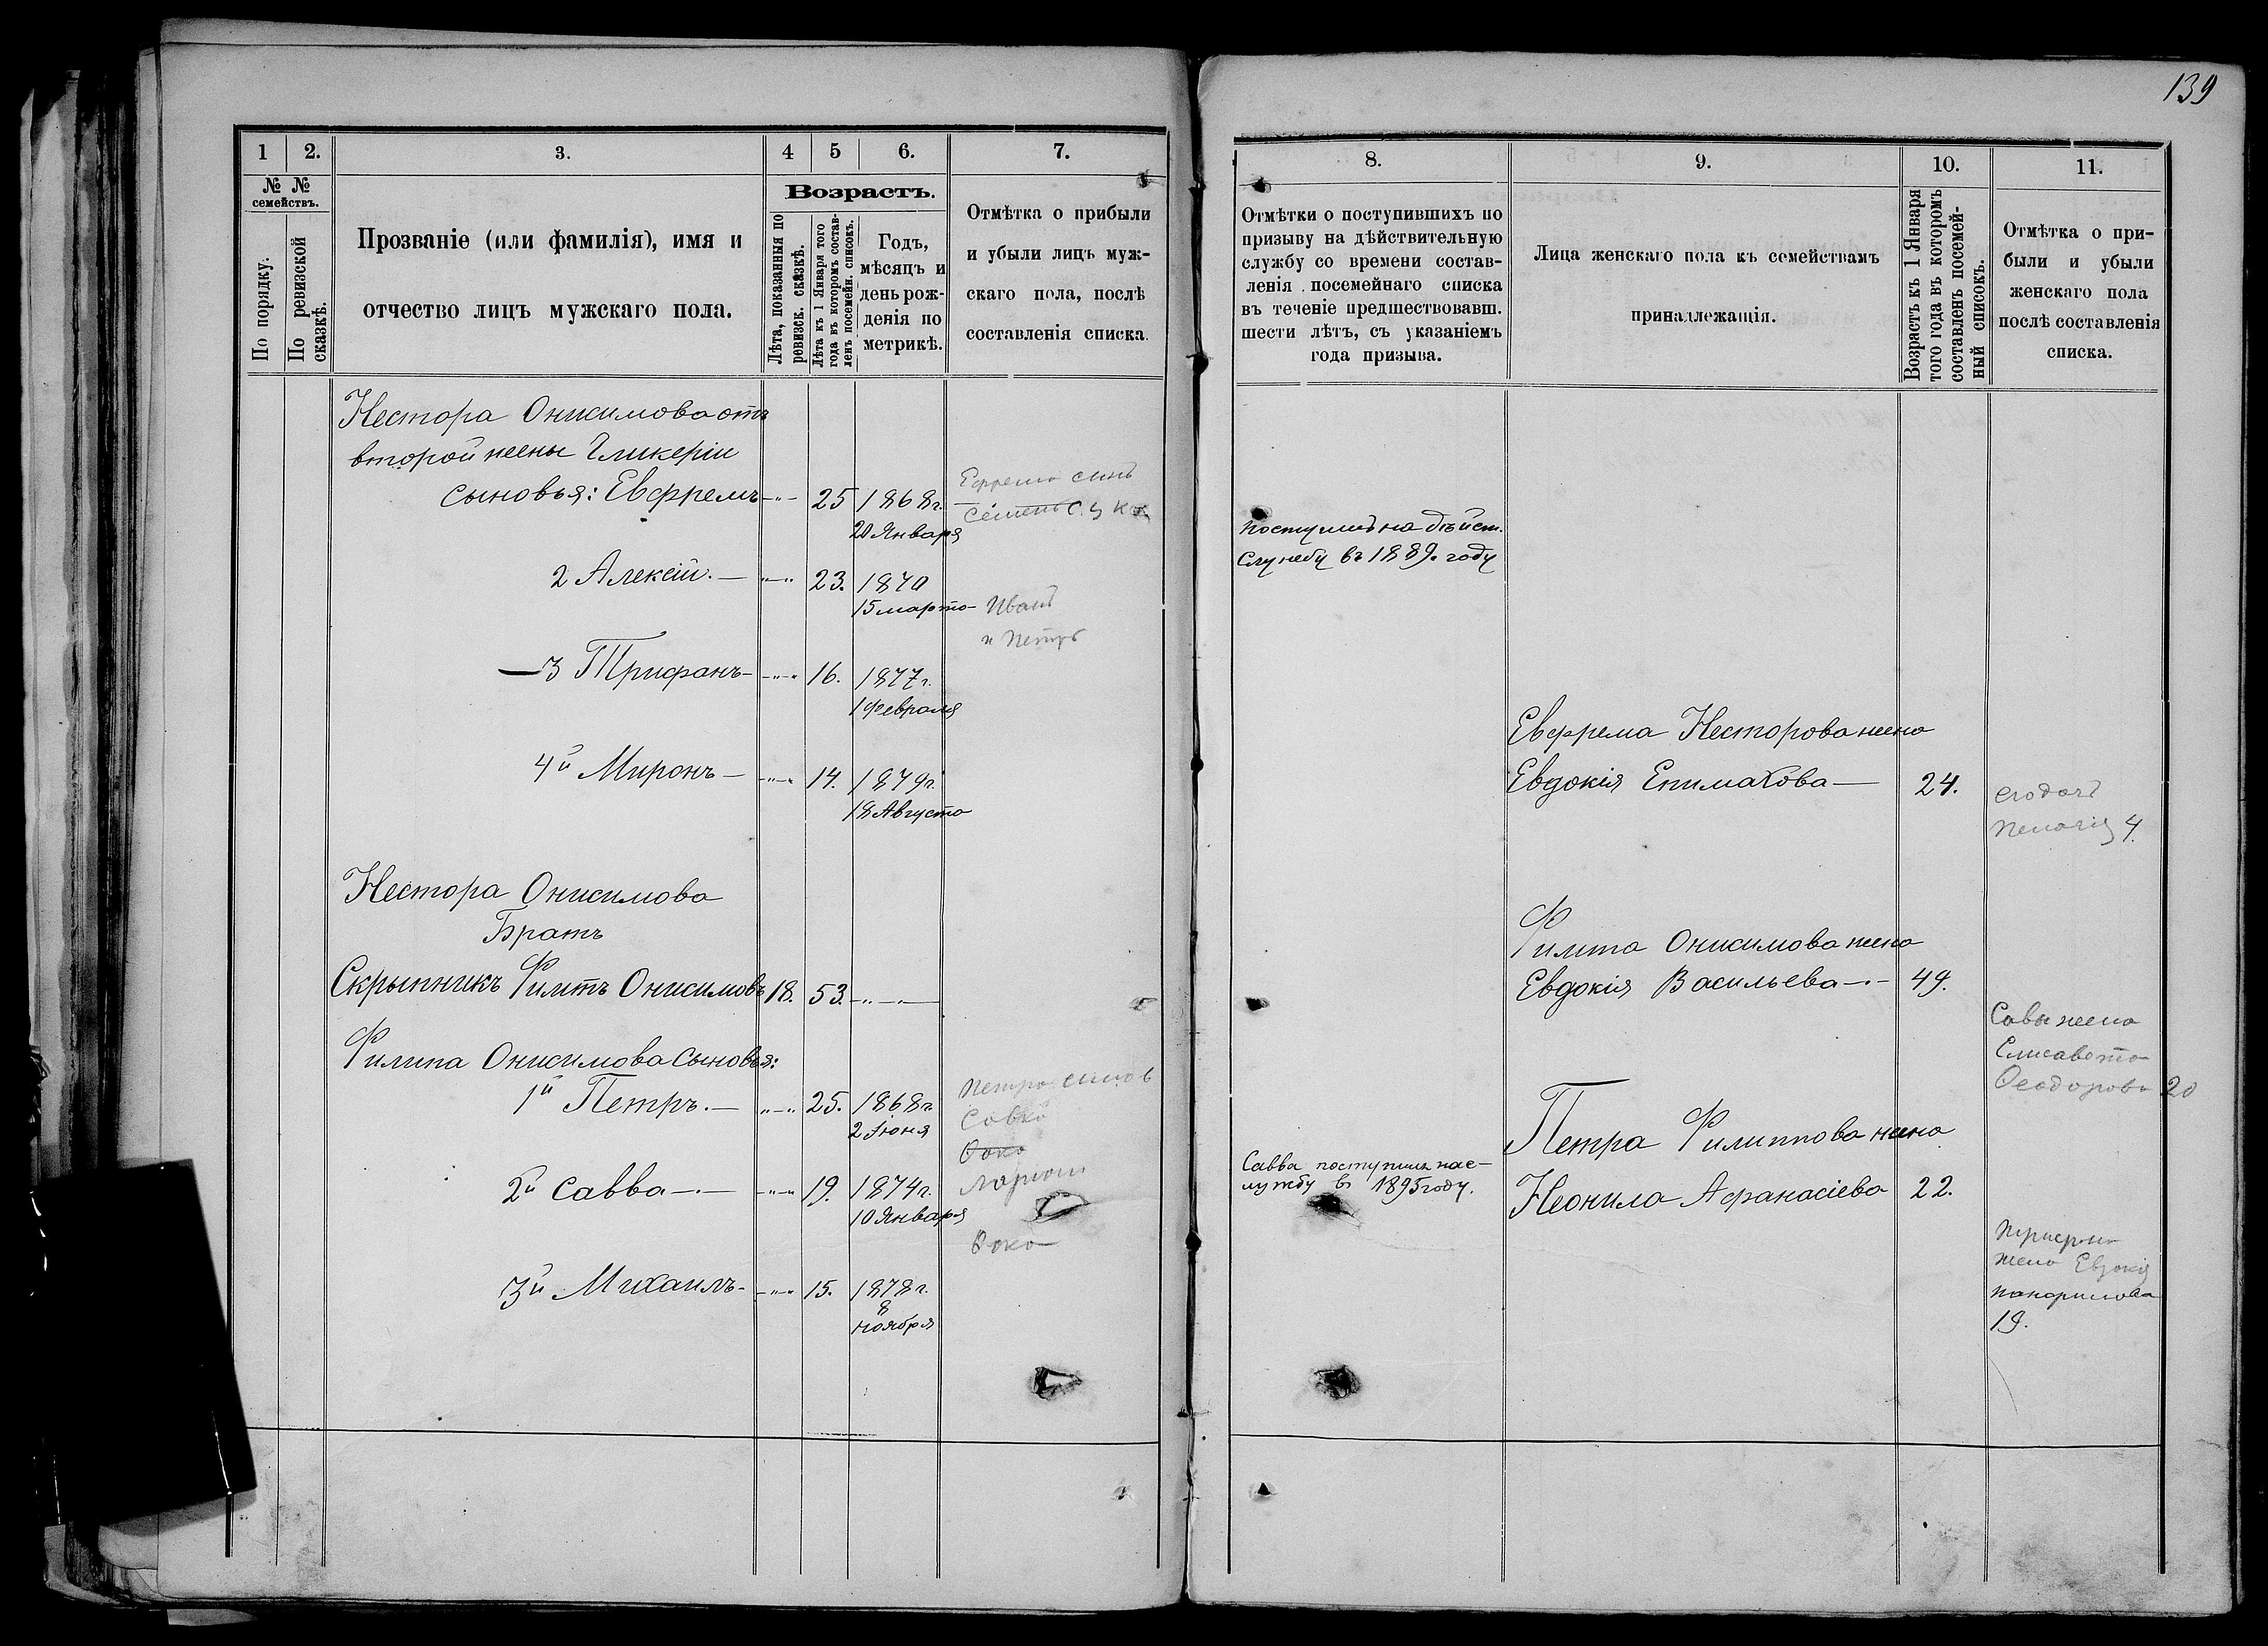 139
1
2.
3.
4
5
6.
7.
№ №
семействъ.
По порядку.
По ревизской
сказкѣ.
Прозваніе (или фамилія), имя и
отчество лицъ мужскаго пола.
Возрастъ.
Лѣта, показанныя по
ревизск. сказкѣ.
Лѣта къ 1 Января того
года въ которомъ состав-
ленъ посемейн. списокъ.
Годъ,
мѣсяцъ и
день рож-
денія по
метрикѣ.
Отмѣтка о прибыли
и убыли лицъ муж-
скаго пола, послѣ
составленія списка.
Нестора Онисимова отъ
второй жены Гликеріи
сыновья: Евфремъ 25 1868г.
20 Января
Ефрема сынъ
Семенъ
2 Алексій. 23. 1870
15 марта
Иванъ
и Петръ
3 Трифанъ 16. 1877г.
1 Февраля
4й Миронъ 14. 1879г.
18 Августа
Нестора Онисимова
Братъ
Скрыпникъ Филипъ Онисимовъ 18. 53.
Филипа Онисимова сыновья:
1й Петръ. 25. 1868г.
2 Іюня
Петра синов
Савка
2й Савва 19. 1874г.
10 Января
3й Михаилъ 15. 1878г.
8
ноября
8.
9.
10.
11.
Отмѣтки о поступившихъ по
призыву на дѣйствительную
службу со времени состав-
ленія посемейнаго списка
въ теченіе предшествовавш.
шести лѣтъ, съ указаніемъ
года призыва.
Лица женскаго пола къ семействамъ
принадлежащія.
Возрастъ къ 1 Января
того года въ которомъ
составленъ посемей-
ный списокъ.
Отмѣтка о при-
были и убыли
женскаго пола
послѣ составленія
списка.
поступилъ на дѣйст.
службу въ 1889. году
Евфрема Несторова жена
Евдокія Епимахова 24.
его дочь
4.
Филипа Онисимова жена
Евдокія Васильева 49.
Савы жена
Елисавета
Феодорова 20
Петра Филиппова жена
Неонила Афанасіева 22.
Савва поступилъ нас-
лужбу въ 1895 году.
жена Евдокія
19.